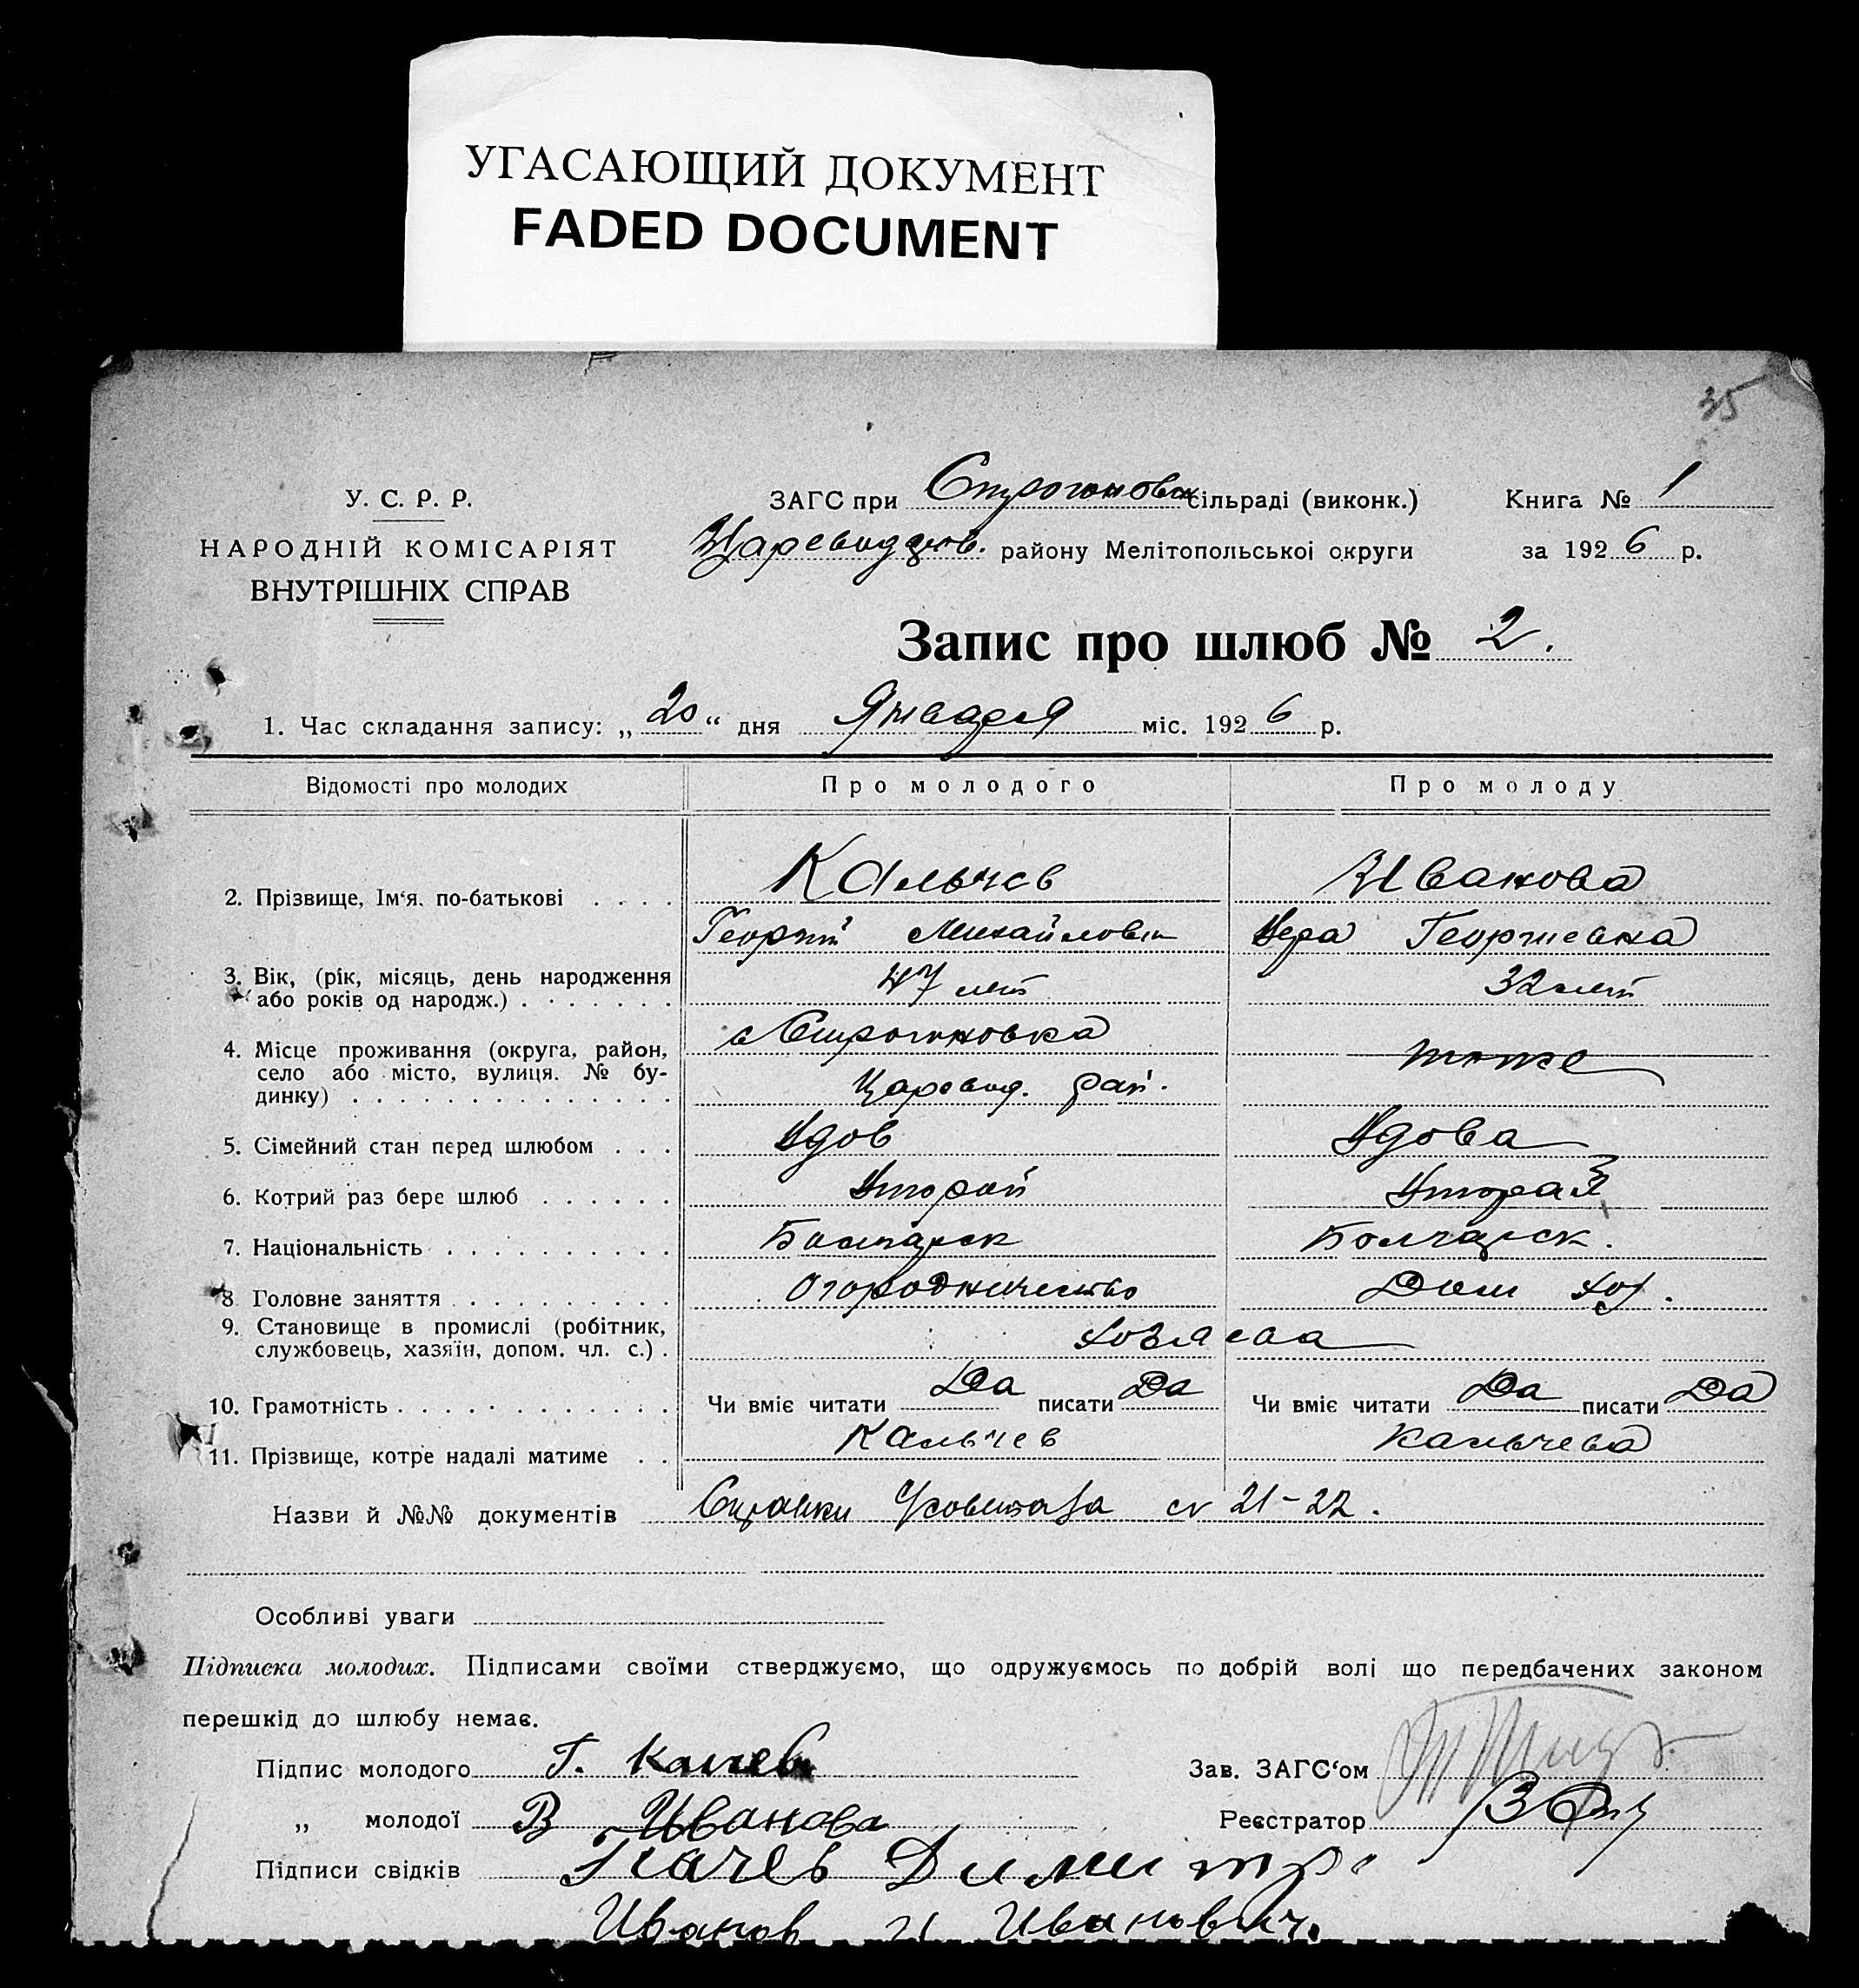 УГАСАЮЩИЙ ДОКУМЕНТ
FADED DOCUMENT
35
У. С. Р. Р.
НАРОДНІЙ КОМІСАРІЯТ
ВНУТРІШНІХ СПРАВ
ЗАГС при Строгоновск сільраді (виконк.)
Царевод. району Мелітопольської округи
Книга № 1
за 1926 р.
Запис про шлюб № 2.
1. Час складання запису: „20“ дня Января міс. 1926 р.
Відомості про молодих Про молодого Про молоду
2. Прізвище, Ім‘я, по-батькові Кальчев Иванова
Георгий Михайлович Вера Георгиевна
3. Вік, (рік, місяць, день народження
або років од народж.) 47 лет 32 лет
4. Місце проживання (округа, район,
село або місто, вулиця. № бу-
динку) с Строгоновка тоже
Царевод. рай.
5. Сімейний стан перед шлюбом Вдов Вдова
6. Котрий раз бере шлюб Второй Вторая
7. Національність Болгарск Болгарск.
8. Головне заняття Огородничество Дом хоз.
9. Становище в промислі (робітник,
службовець, хазяїн, допом. чл. с.) Хозяева
10. Грамотність Чи вміє читати Да писати Да Чи вміє читати Да писати Да
11. Прізвище, котре надалі матиме Кальчев Кальчева
Назви й №№ документів Справки 21-22.
Особливі уваги
Підписка молодих. Підписами своїми стверджуємо, що одружуємось по добрій волі що передбачених законом
перешкід до шлюбу немає.
Підпис молодого Г. Калчев
Зав. ЗАГС‘ом
„ молодої В Иванова
Реєстратор
Підписи свідків Димитр
Иванов И Иванович.